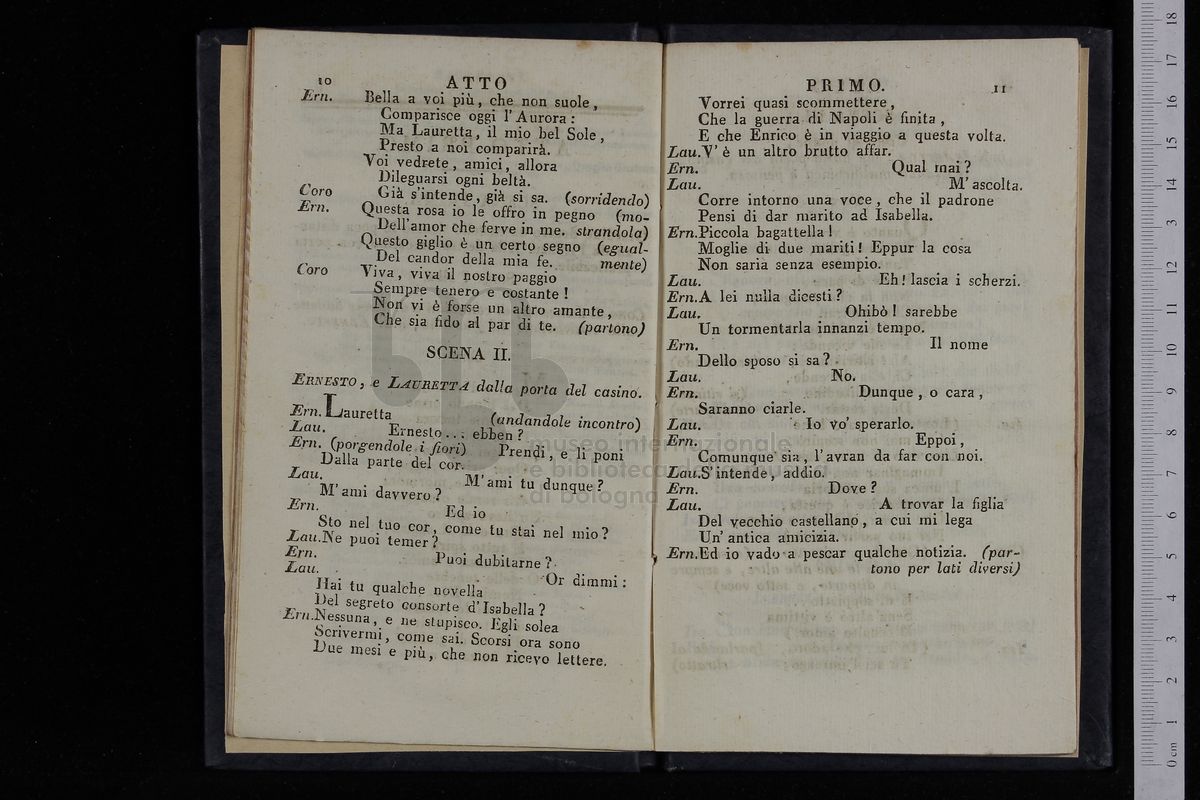 10 ATTO
Ern. Bella a voi più, che non suole,
Comparisce oggi l'Aurora:
Ma Lauretta, il mio bel Sole,
Presto a noi comparirà.
Voi vedrete, amici, allora
Dileguarsi ogni beltà.
Coro Già s'intende, già si sa. (sorridendo)
Ern. Questa rosa io le offro in pegno (mo-
Dell'amor che ferve in me. strandola)
Questo giglio è un certo segno (egual-
Del candor della mia fe. mente)
Coro Viva, viva il nostro paggio
Sempre tenero e costante!
Non vi è forse un altro amante,
Che sia fido al par di te. (partono)
SCENA II.
ERNESTO, e LAURETTA dalla porta del casino.
Ern. Lauretta (andandole incontro)
Lau. Ernesto... ebben?
Ern. (porgendole i fiori) Prendi, e li poni
Dalla parte del cor.
Lau. M'ami tu dunque?
M'ami davvero?
Ern. Ed io
Sto nel tuo cor, come tu stai nel mio?
Lau. Ne puoi temer?
Ern. Puoi dubitarne?
Lau. Or dimmi:
Hai tu qualche novella
Del segreto consorte d'Isabella?
Ern. Nessuna, e ne stupisco. Egli solea
Scrivermi, come sai. Scorsi ora sono
Due mesi e più, che non ricevo lettere.
PRIMO. 11
Vorrei quasi scommettere,
Che la guerra di Napoli è finita,
E che Enrico è in viaggio a questa volta.
Lau. V'è un altro brutto affar.
Ern. Qual mai?
Lau. M'ascolta.
Corre intorno una voce, che il padrone
Pensi di dar marito ad Isabella.
Ern. Piccola bagattella!
Moglie di due mariti! Eppur la cosa
Non saria senza esempio.
Lau. Eh! lascia i scherzi.
Ern. A lei nulla dicesti?
Lau. Ohibò! sarebbe
Un tormentarla innanzi tempo.
Ern. Il nome
Dello sposo si sa?
Lau. No.
Ern. Dunque, o cara,
Saranno ciarle.
Lau. Io vo' sperarlo.
Ern. Eppoi,
Comunque sia, l'avran da far con noi.
Lau. S'intende, addio.
Ern. Dove?
Lau. A trovar la figlia
Del vecchio castellano, a cui mi lega
Un'antica amicizia.
Ern. Ed io vado a pescar qualche notizia. (par-
tono per lati diversi)
museo internazionale
e biblioteca della musica
di bologna
0 cm 1 2 3 4 5 6 7 8 9 10 11 12 13 14 15 16 17 18